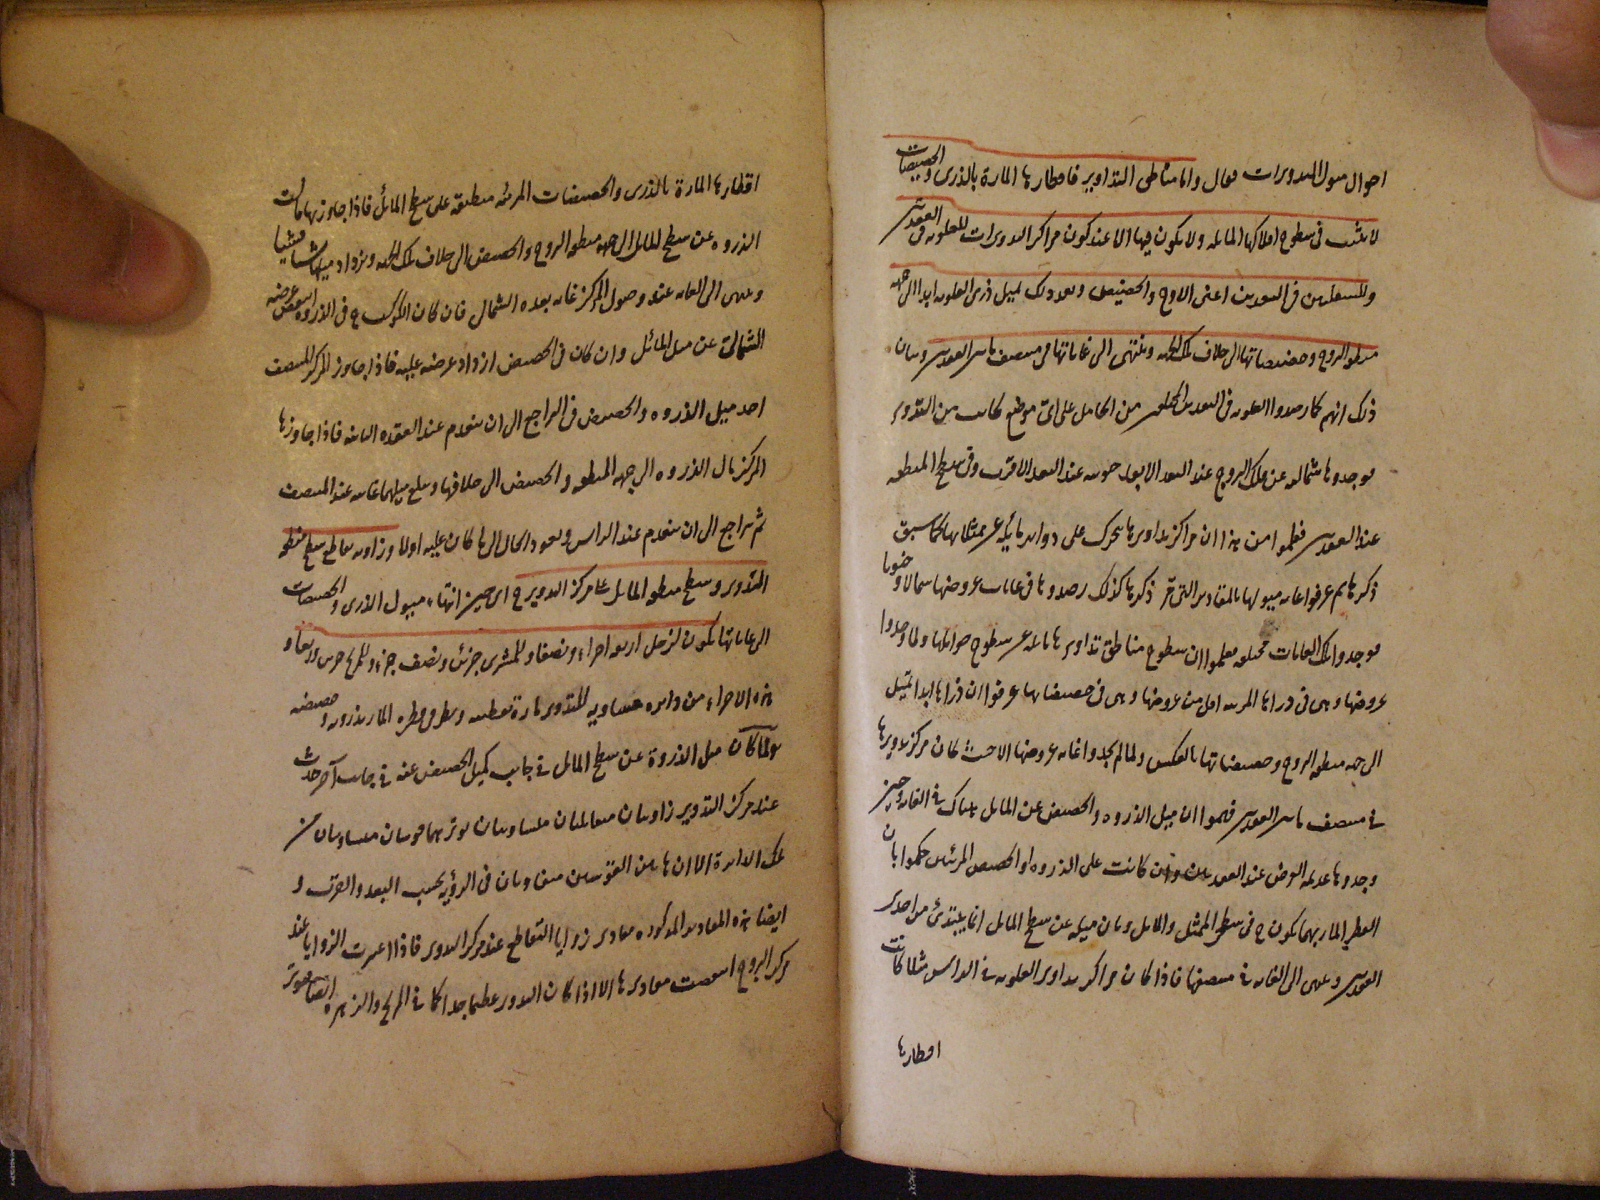 احوال ميول التدويرات فقال واما مناطق التداوير فاقطارها المارة بالذرى والحضيضات
لا تثبت فى سطوح افلاكها المائله ولا يكون فيها الا عند كون مراكز التدويرات للعلويه فى العقدتين
وللسفليين فى البعدين اعنى الاوج والحضيض وبعد ذلك يميل ذرى العلويه ابدا الى جهه
منطقه البروج وحضيضاتها الى خلاف تلك الجهه وينتهى الى غاياتها فى منتصف ما بين العقدتين وبيان
ذلك انهم لما رصدوا العلويه فى البعدين من الحامل على اى موضع كانت من التدوير
فوجدوها شماليه عن فلك البروج عند البعد الابعد جنوبيه عند البعد الاقرب وفى سطح المنطقه
عند العقدتين فعلموا من هذا ان مراكز تداويرها يتحرك على دواير مائله عن ممثلاتها كما سبق
ذكرها ثم عرفوا غايه ميولها بالمقادير التى مر ذكرها كذلك رصدوها فى غايات عروضها شمالا وجنوبا
فوجدوا تلك الغايات مختلفه فعلموا ان سطوح مناطق تداويرها مائله عن سطوح حواملها ولما وجدوا
عروضها وهى فى ذراها المرئيه اقل من عروضها وهى فى حضيضاتها عرفوا ان ذراها ابدا تميل
الى جهه منطقه البروج وحضيضاتها بالعكس ولما لم يجدوا غايه عروضها الا حيث كان مركز تدويرها
فى منتصف ما بين العقدتين فهموا ان ميل الذروه والحضيض عن المائل هناك فى الغايه وحين
وجدوها عديمه العرض عند العقدتين وان كانت على الذروه او الحضيض المرئيين حكموا بان
القطر المار بهما يكون ح فى سطحى الممثل والمائل وبان ميله عن سطح المائل انما يبتدئ من احدى
العقدتين وينتهى الى الغايه فى منتصفها فاذا كان مراكز تداوير العلويه فى الراس مثلا كانت
اقطارها
اقطارها المارة بالذرى والحضيضات المرئيه منطبقه على سطح المائل فاذا جاوزتها مالت
الذروه عن سطح المائل الى جهه منطقه البروج والحضيض الى خلاف تلك الجهه ويزداد ميلهما شيئا فشيئا
وينتهى الى الغايه عند وصول المركز غايه بعده الشمالى فان كان الكوكب ح فى الذروه انتقص عرضه
الشمالى عن ميل المائل وان كان فى الحضيض ازداد عرضه عليه فاذا جاوز المركز المنتصف
اخذ ميل الذروه والحضيض فى التراجع الى ان ينعدم عند العقده الثانيه فاذا جاوزها
المركز مال الذروه الى جهه المنطقه والحضيض الى خلافها ويبلغ ميلهما غايته عند المنتصف
ثم تراجع الى ان ينعدم عند الراس ويعود الحال الى ما كان عليه اولا وزاويه تقاطع سطح منطقه
التدوير وسطح منطقه المائل على مركز التدوير ح اى حين انتهاء ميول الذرى والحضيضات
الى غاياتها يكون لزحل اربعه اجزاء ونصفا وللمشترى جزئين ونصف جزء وللمريخ جزئين وربعا و
هذه الاجزاء من دايره مساويه للتدوير مارة بقطبيه وبطرفى قطره المار بذروته وحضيضه
ولما كان ميل الذروة عن سطح المائل فى جانب كميل الحضيض عنه فى جانب آخر حدث
عند مركز التدوير زاويتان متقابلتان متساويتان يوترهما قوسان متساويتان من
تلك الدايرة الا ان هاتين القوسين متفاوتان فى الرؤيه بحسب البعد والقرب و
ايضا هذه المقادير المذكوره مقادير زوايا التقاطع عند مركز التدوير فاذا اعتبرت الزوايا عند
مركز البروج انتقصت مقاديرها الا اذا كان التدوير عظيما جدا كما فى المريخ والزهره